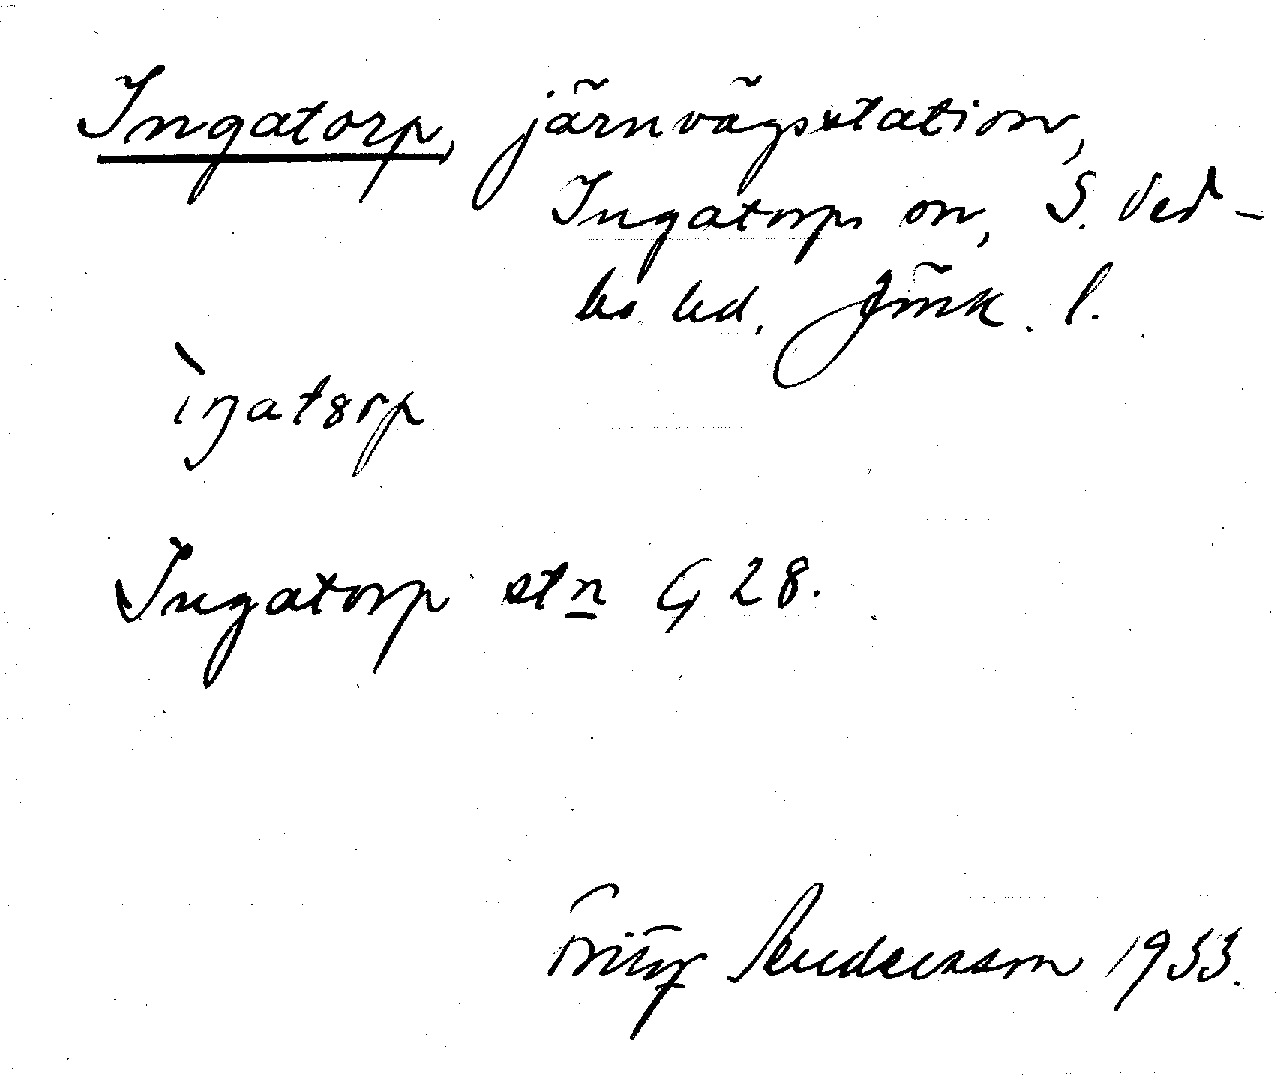 Ingatorp, järnvägsstation,
Ingatorps sn, S. Ved-
bo hd. Jönk. l.
ìŋatȣrp
Ingatorp stn G 28.
Fritz Andersson 1933.